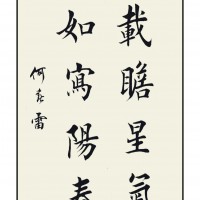 載瞻星氣
如寫陽春
何春雷